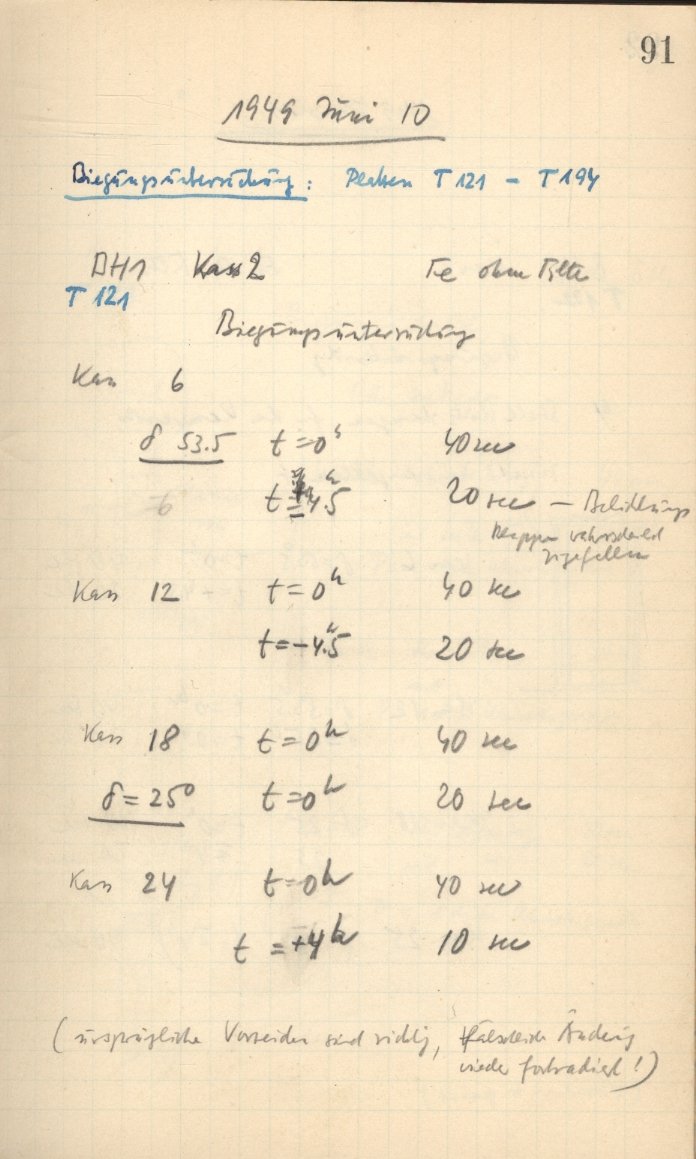 91
1949 Juni 10
Biegungsuntersuchung: Platten T 121 - T 194
DH1 Kass 2 Fe ohne Filter
T 121
Biegungsuntersuchung
Kass 6
δ 53.5 t = 0h 40 sec
t = 4.5h 20 sec — Belichtungs
klappe wahrscheinl
zugefallen
Kass 12 t = 0h 40 sec
t = -4.5h 20 sec
Kass 18 t = 0h 40 sec
δ = 25° t = 0h 20 sec
Kass 24 t = 0h 40 sec
t = +4h 10 sec
(ursprügliche Vorzeichen sind richtig, fälschliche Änderung
wieder fortradiert!)